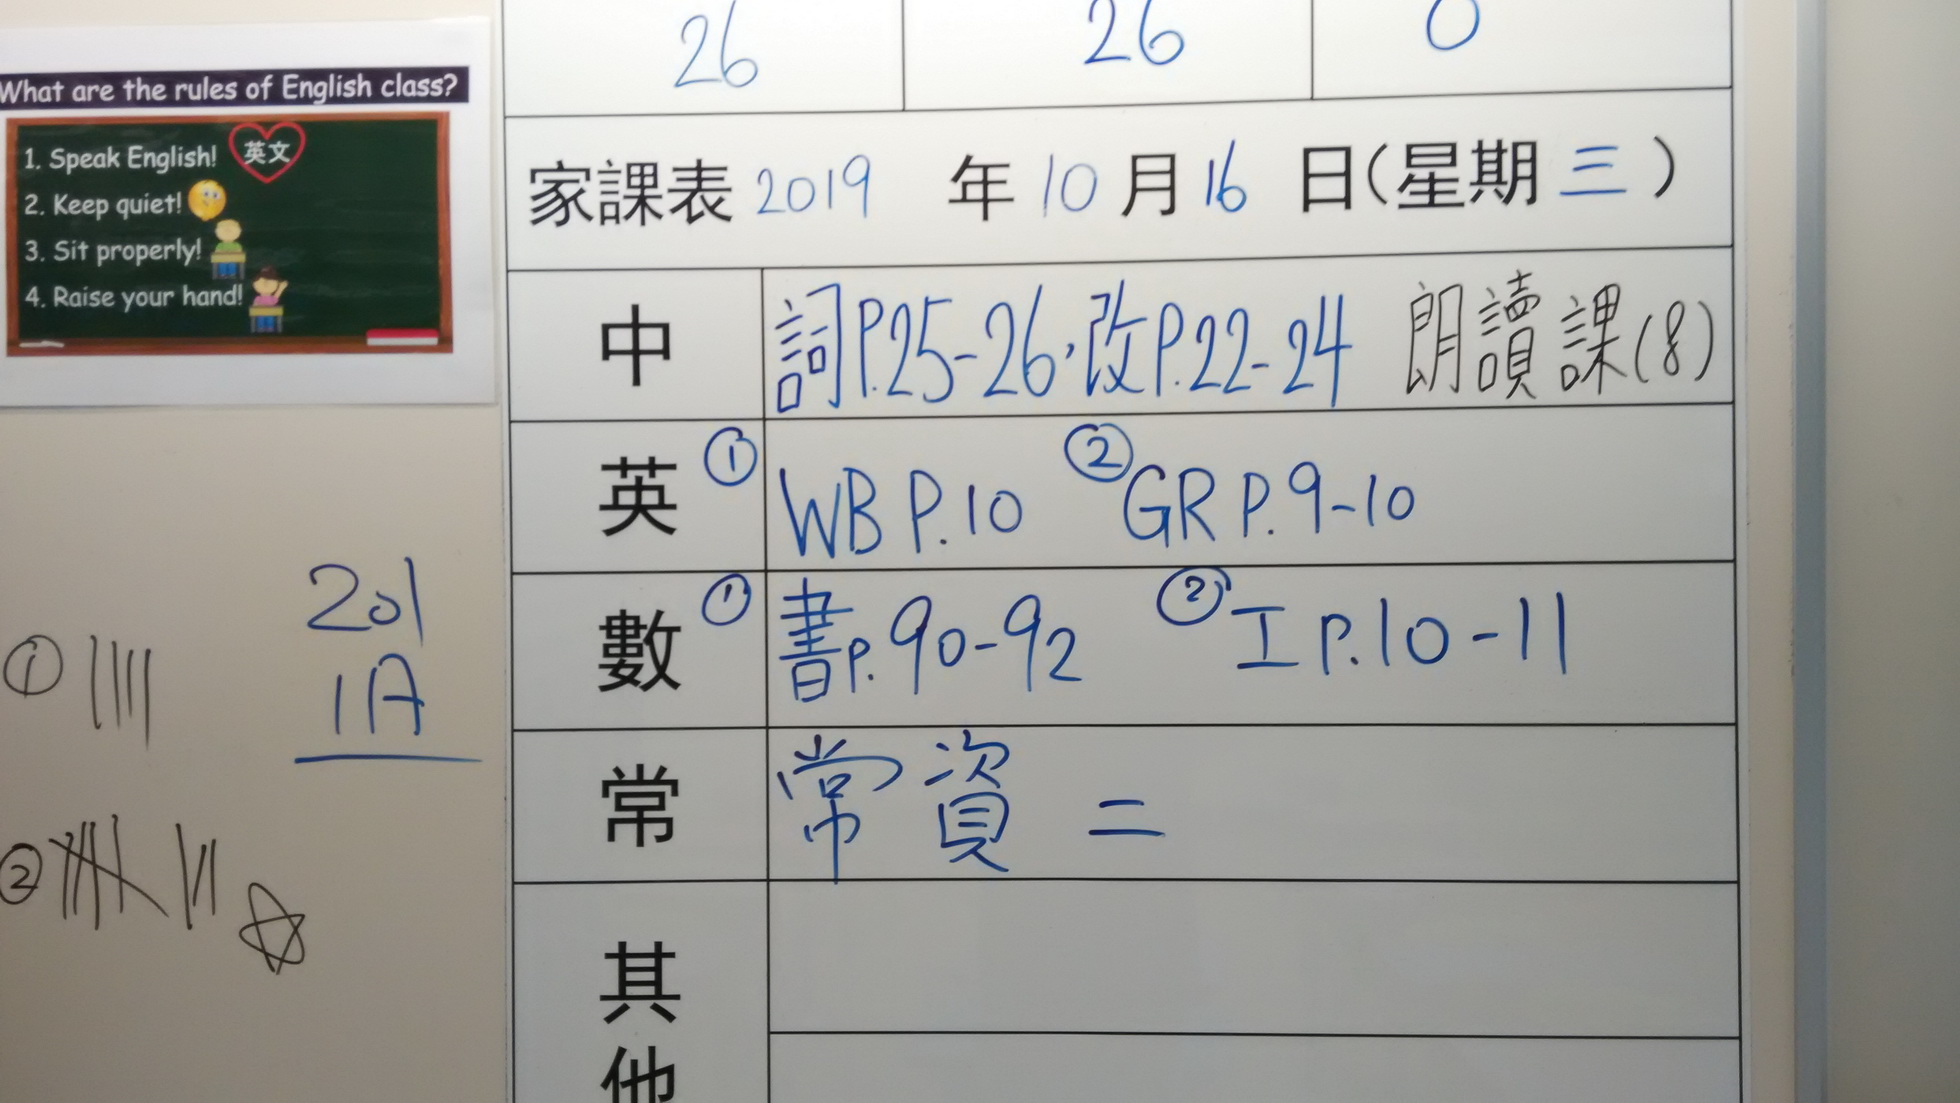 What are the rules of English class?
1. Speak English! 英文
2. Keep quiet!
3. Sit properly!
4. Raise your hand!
201
1A
①
②
26 26 0
家課表 2019 年 10 月 16 日(星期 三)
中 詞P.25-26,改P.22-24 朗讀課(8)
英 ① WB P.10 ② GR P.9-10
數 ① 書P.90-92 ② 工P.10-11
常 常資 二
其
他